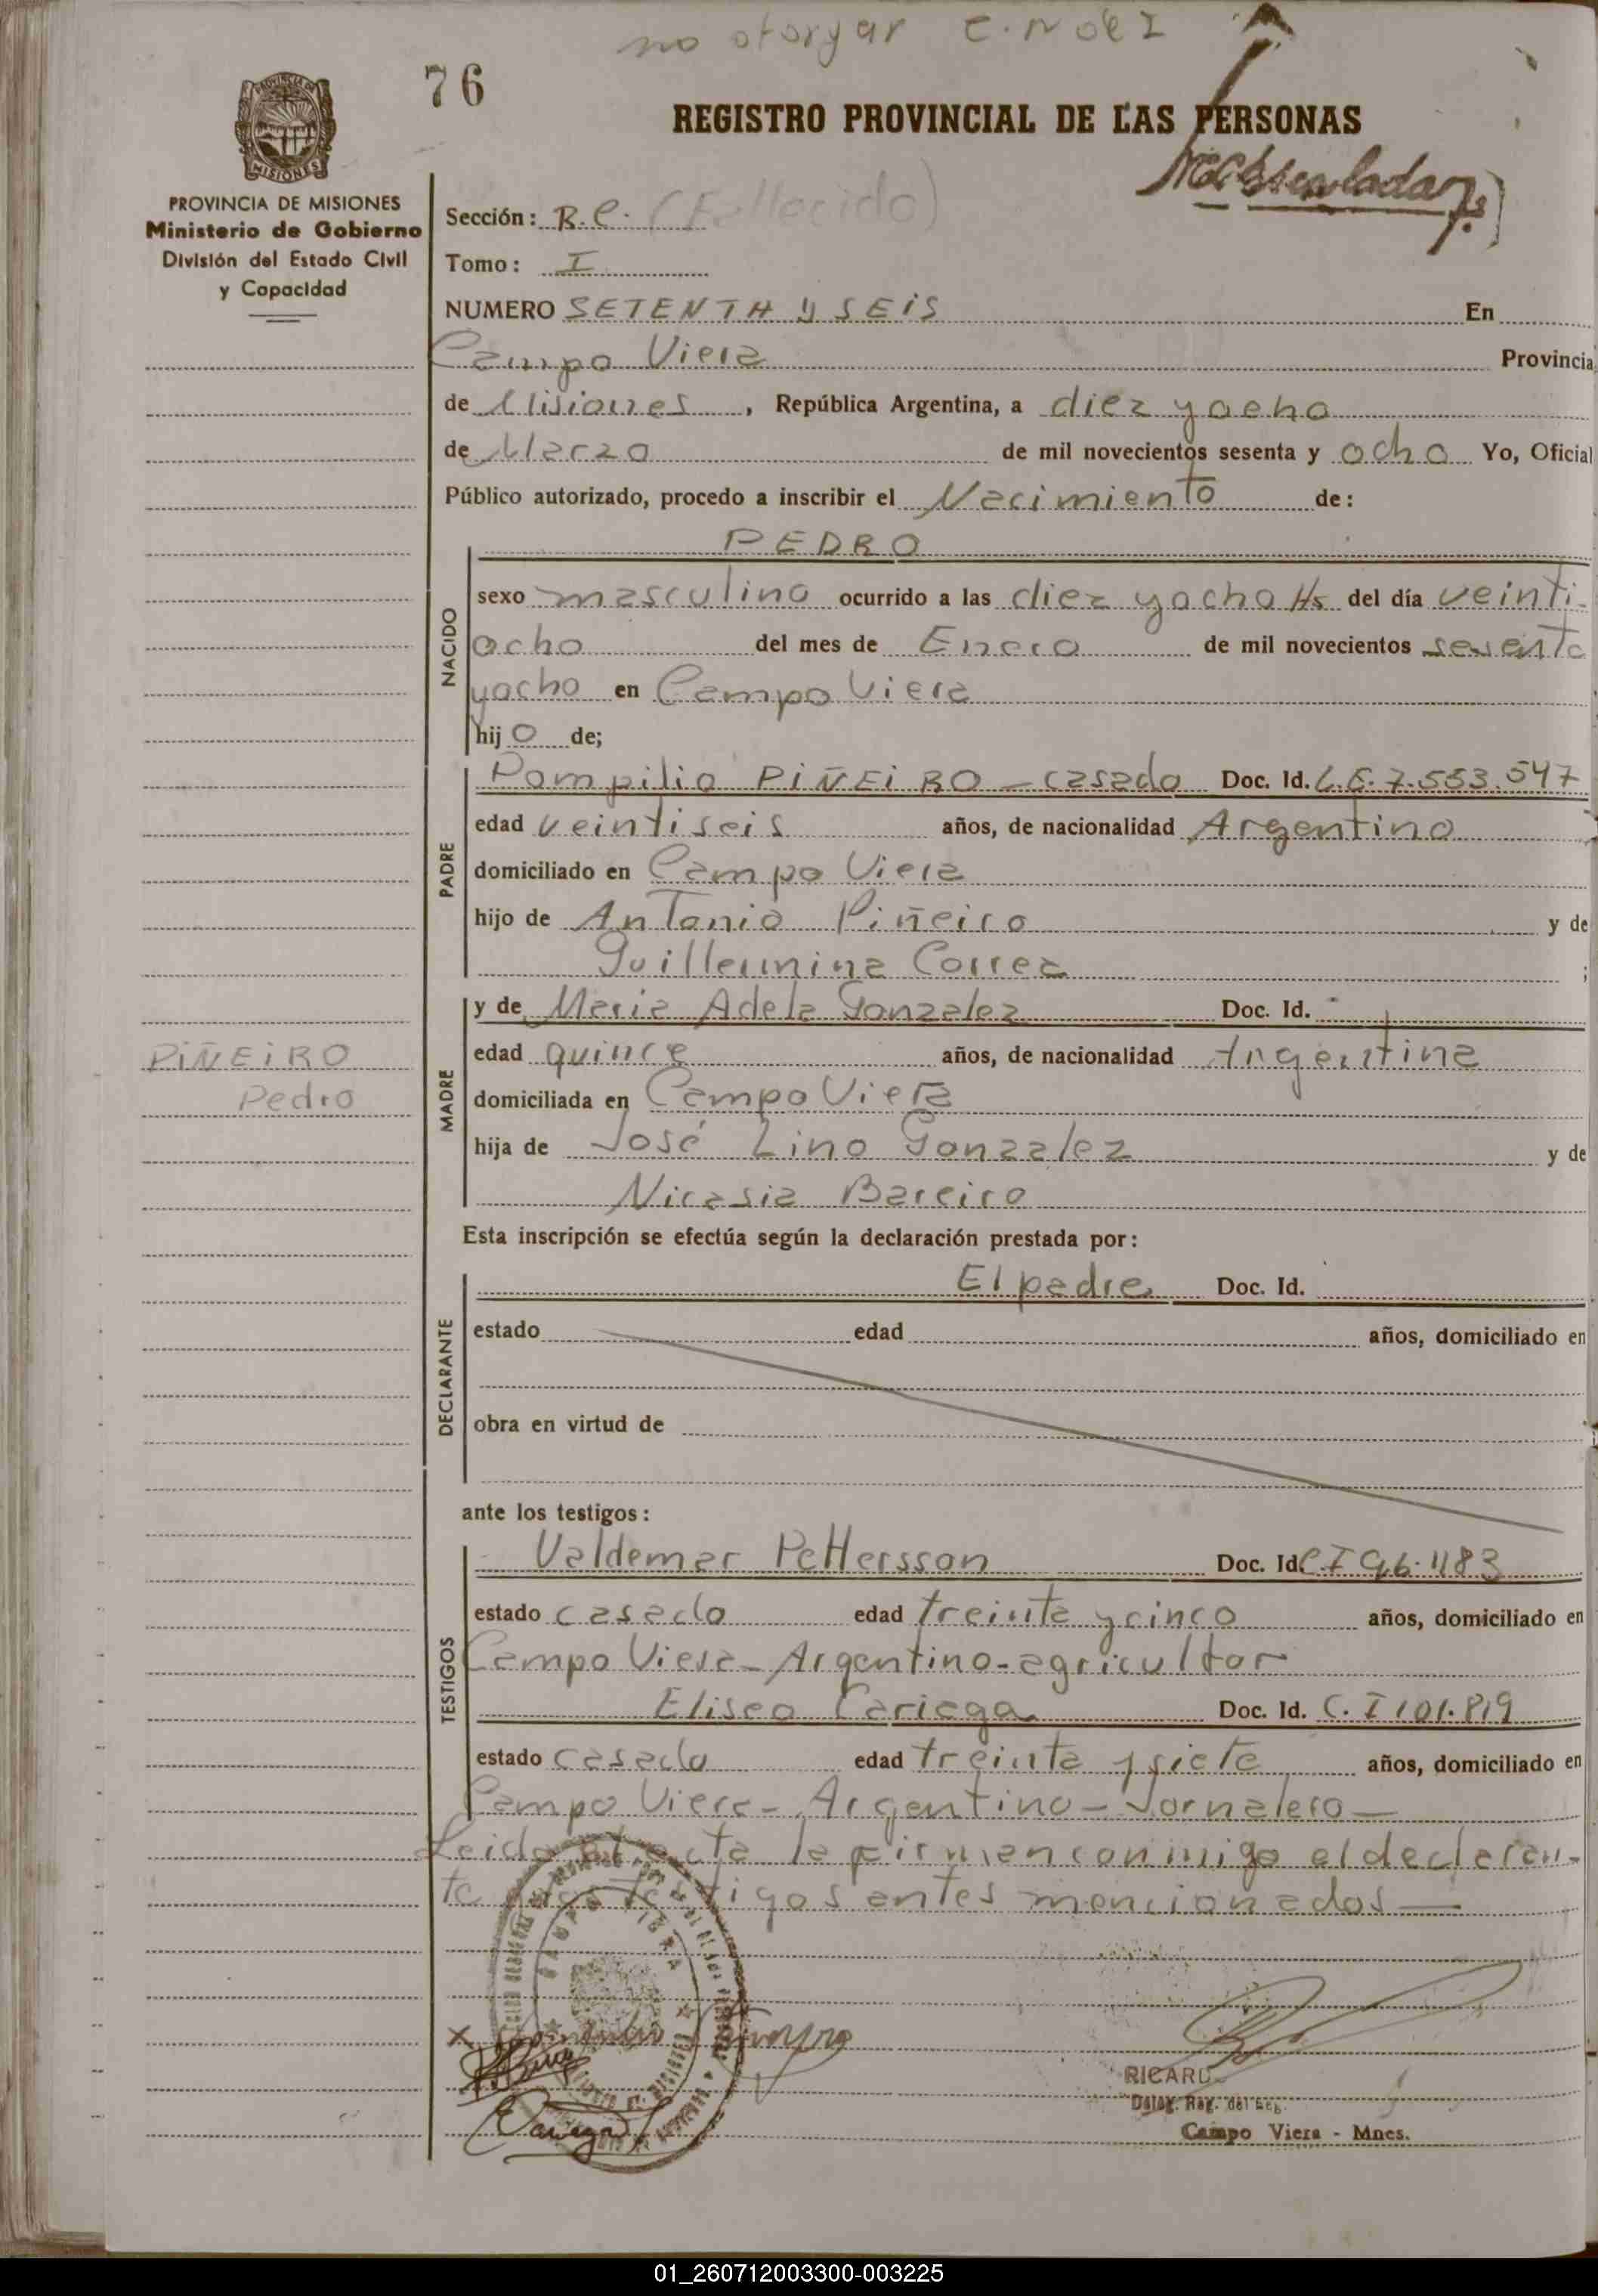 no otorgar
76
REGISTRO PROVINCIAL DE LAS PERSONAS
MISIONES
PROVINCIA DE MISIONES
Ministerio de Gobierno
División del Estado Civil
y Capacidad
Sección: R.C. (Fallecido)
Tomo: I
NUMERO SETENTA y SEIS En
Campo Viera Provincia
de Misiones, República Argentina, a diez y ocho
de Marzo de mil novecientos sesenta y ocho Yo, Oficial
Público autorizado, procedo a inscribir el Nacimiento de:
PEDRO
NACIDO
sexo masculino ocurrido a las diez y ocho Hs del día veinti-
ocho del mes de Enero de mil novecientos sesenta
y ocho en Campo Viera
hijo de;
PADRE
Pompilio PIÑEIRO - casado Doc. Id. L.E. 7.553.547
edad veintiseis años, de nacionalidad Argentino
domiciliado en Campo Viera
hijo de Antonio Piñeiro y de
Guillermina Correa ;
MADRE
y de Maria Adela Gonzalez Doc. Id. -
edad quince años, de nacionalidad Argentina
PIÑEIRO
Pedro
domiciliada en Campo Viera
hija de José Lino Gonzalez y de
Nicasia Bareiro
Esta inscripción se efectúa según la declaración prestada por:
DECLARANTE
El padre Doc. Id.
estado edad años, domiciliado en
obra en virtud de
ante los testigos:
TESTIGOS
Valdemar Pettersson Doc. Id. C I 96.1183
estado casado edad treinta y cinco años, domiciliado en
Campo Viera - Argentino - agricultor
Eliseo Cariaga Doc. Id. C. I 101.819
estado casado edad treinta y siete años, domiciliado en
Campo Viera - Argentino - Jornalero -
Leida el acta la firman conmigo el declaran-
te y los testigos antes mencionados -
CAMPO VIERA
RICARD
Campo Viera - Mnes.
01_260712003300-003225